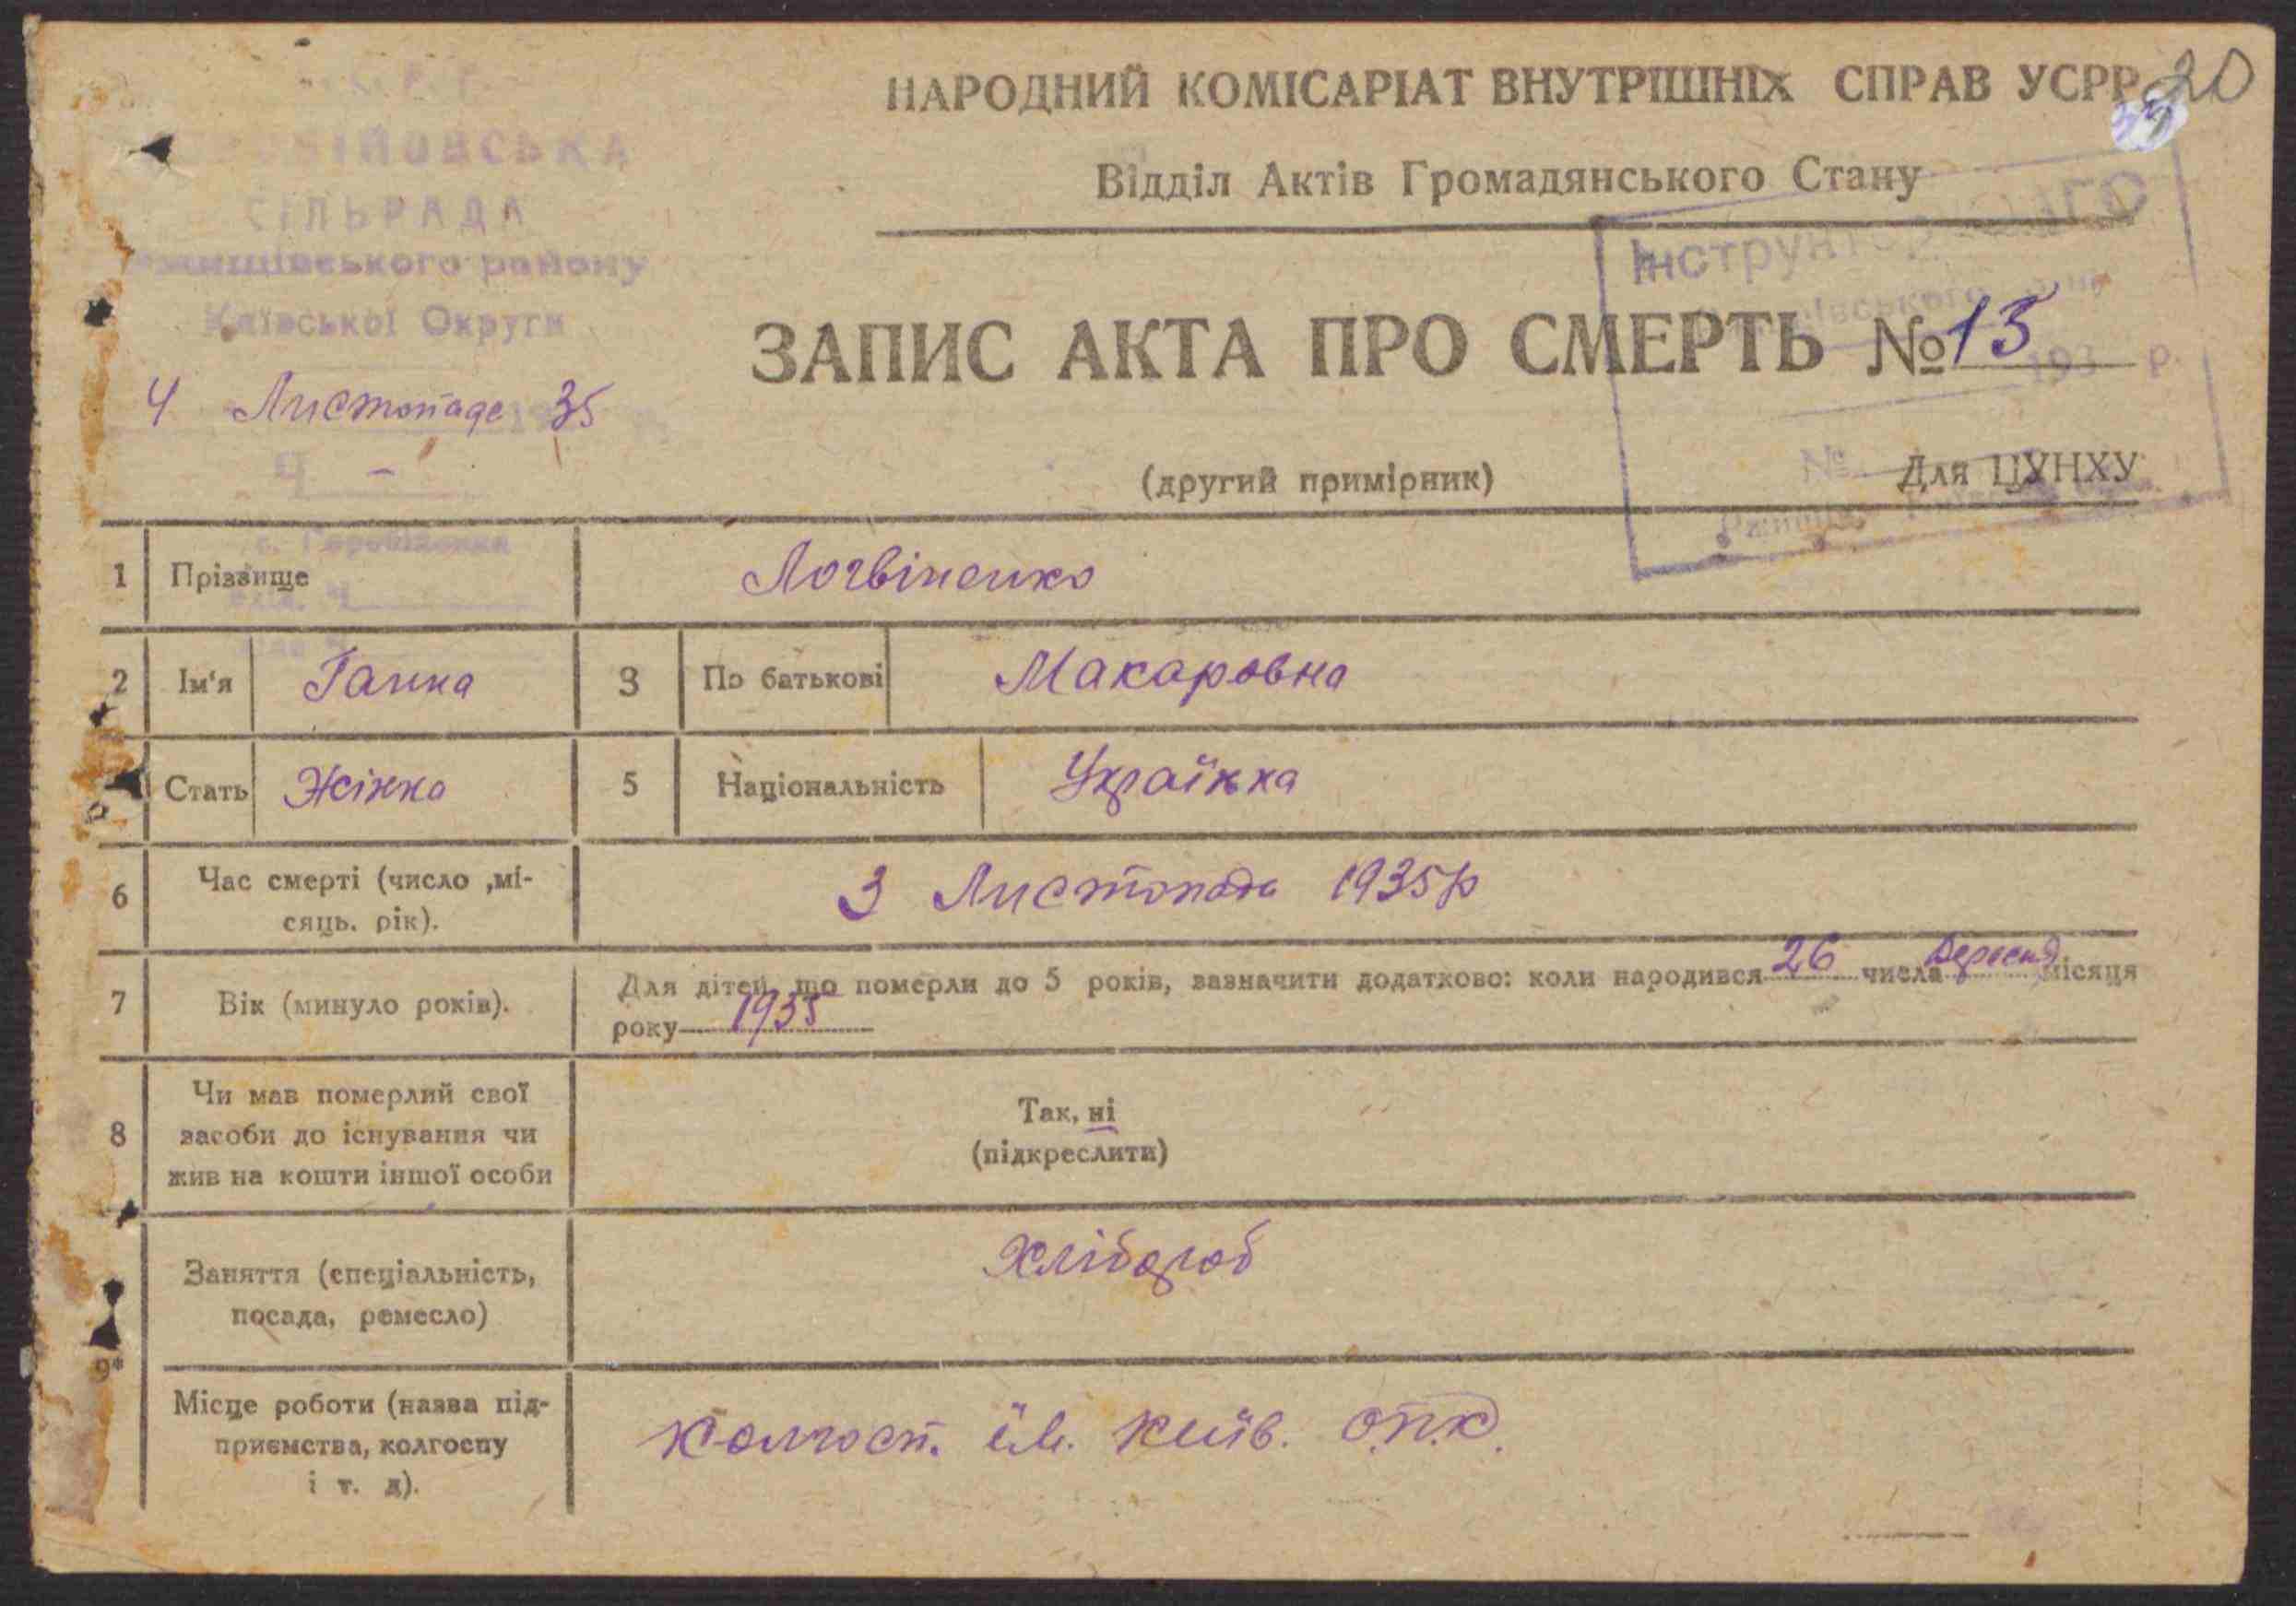 20
НАРОДНИЙ КОМІСАРІАТ ВНУТРІШНІХ СПРАВ УСРР
Відділ Актів Громадянського Стану
СІЛЬРАДА
району
Київської Округи
4 Листопаде 35
ЗАПИС АКТА ПРО СМЕРТЬ № 13
193 р.
(другий примірник)
№ Для ЦУНХУ
1 Прізвище Логвіненко
2 Ім'я Ганна 3 По батькові Макаровна
Стать Жінка 5 Національність Українка
6 Час смерті (число ,мі-
сяць. рік).
3 Листопада 1935р
7 Вік (минуло років).
Для дітей, що померли до 5 років, зазначити додатково: коли народився 26 числа Вересня місяця
року 1935
8 Чи мав померлий свої
засоби до існування чи
жив на кошти іншої особи
Так, ні
(підкреслити)
9*
Заняття (спеціальність,
посада, ремесло)
Хлібороб
Місце роботи (назва під-
приємства, колгоспу
і т. д).
Колгосп. їм. Київ. О.П.К.